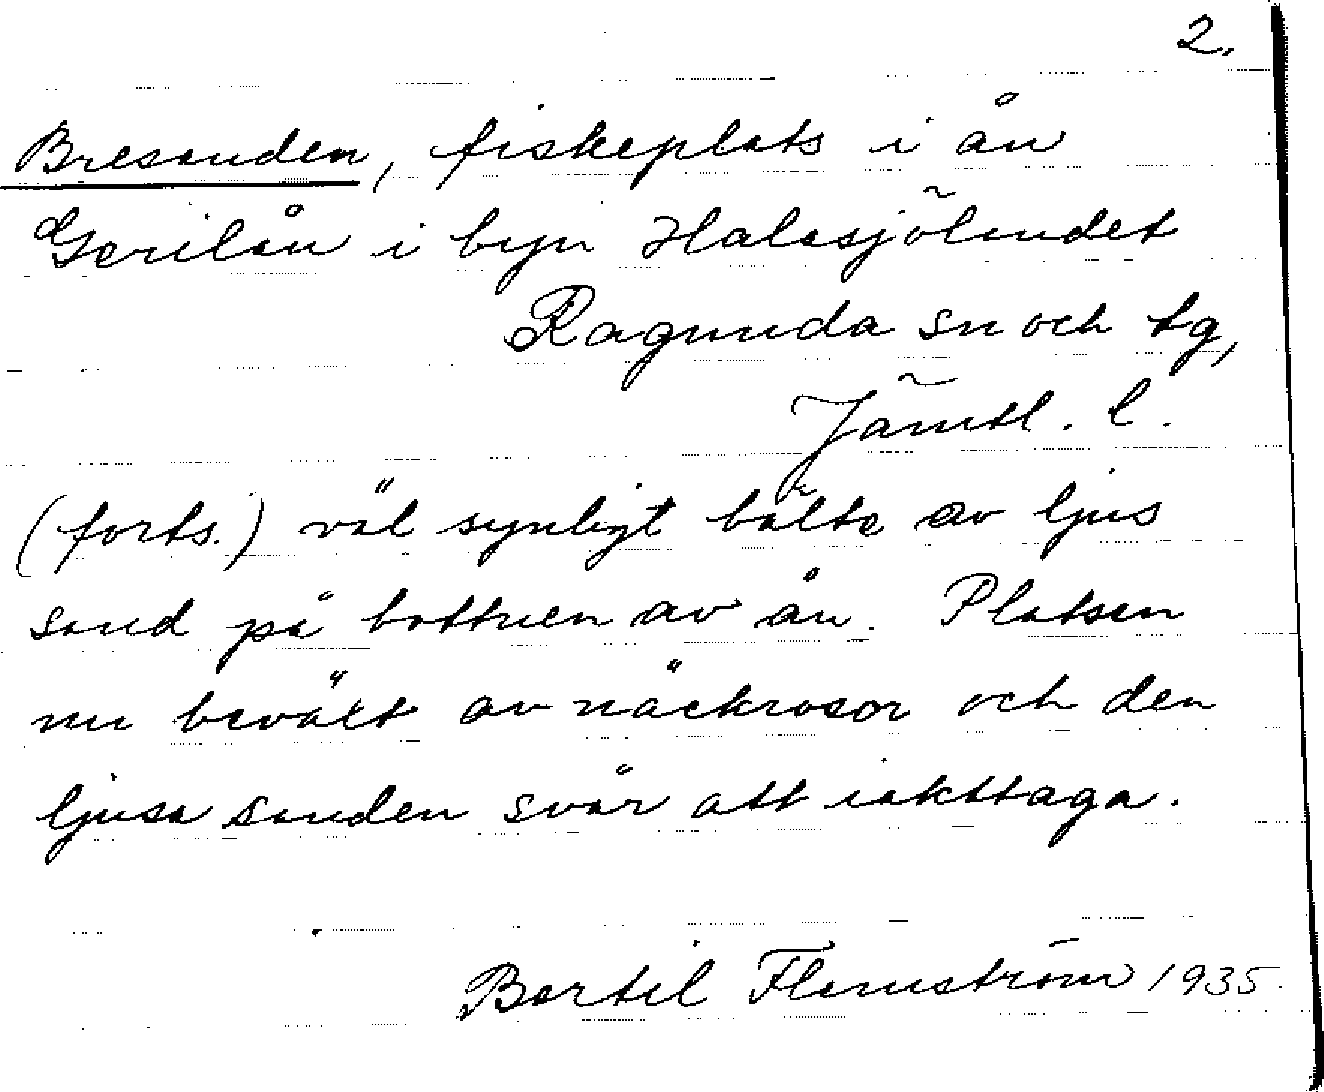 2.
Bresanden, fiskeplats i ån
Gerilån i byn Halasjölandet
Ragunda sn och tg,
Jämtl. l.
(forts.) väl synligt bälte av ljus
sand på bottnen av ån. Platsen
nu bevält av näckrosor och den
ljusa sanden svår att iakttaga.
Bertil Flemström 1935.